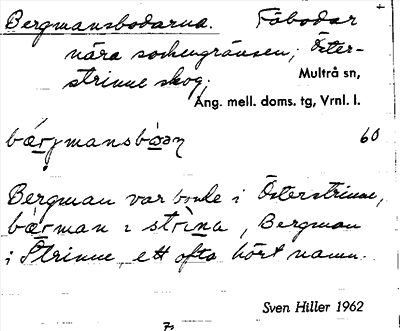 Bergmansbodarna. Fäbodar
nära sockengränsen; Öster-
strinne skog.
Multrå sn,
Ång. mell. doms. tg, Vrnl. l.
60
Bergman var bonde i Österstrinne,
bærman i strina, Bergman
i Strinne, ett ofta hört namn.
Sven Hiller 1962